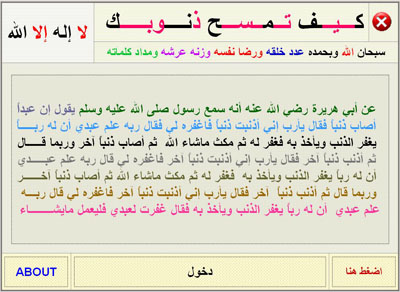 كـيـف تـمـسـح ذنـوبـك
لا إله إلا الله
سبحان الله وبحمده عدد خلقه ورضا نفسه وزنه عرشه ومداد كلماته
عن أبي هريرة رضي الله عنه أنه سمع رسول صلى الله عليه وسلم يقول إن عبداً
أصاب ذنباً فقال يأرب إني أذنبت ذنباً فاغفره لي فقال ربه علم عبدي أن له ربـــاً
يغفر الذنب ويأخذ به فغفر له ثم مكث ماشاء الله ثم أصاب ذنباً آخر وربما قــــال
ثم أذنب ذنباً آخر فقال يأرب إني أذنبت ذنباً آخر فاغفره لي قال ربه علم عبـــدي
أن له رباً يغفر الذنب ويأخذ به فغفر له ثم مكث ماشاء الله ثم أصاب ذنباً آخـــر
وربما قال ثم أذنب ذنباً آخر فقال يأرب إني أذنبت ذنباً آخر فاغفره لي قال ربـــه
علم عبدي أن له رباً يغفر الذنب ويأخذ به فقال غفرت لعبدي فليعمل مايشـــاء
اضغط هنا
دخول
ABOUT